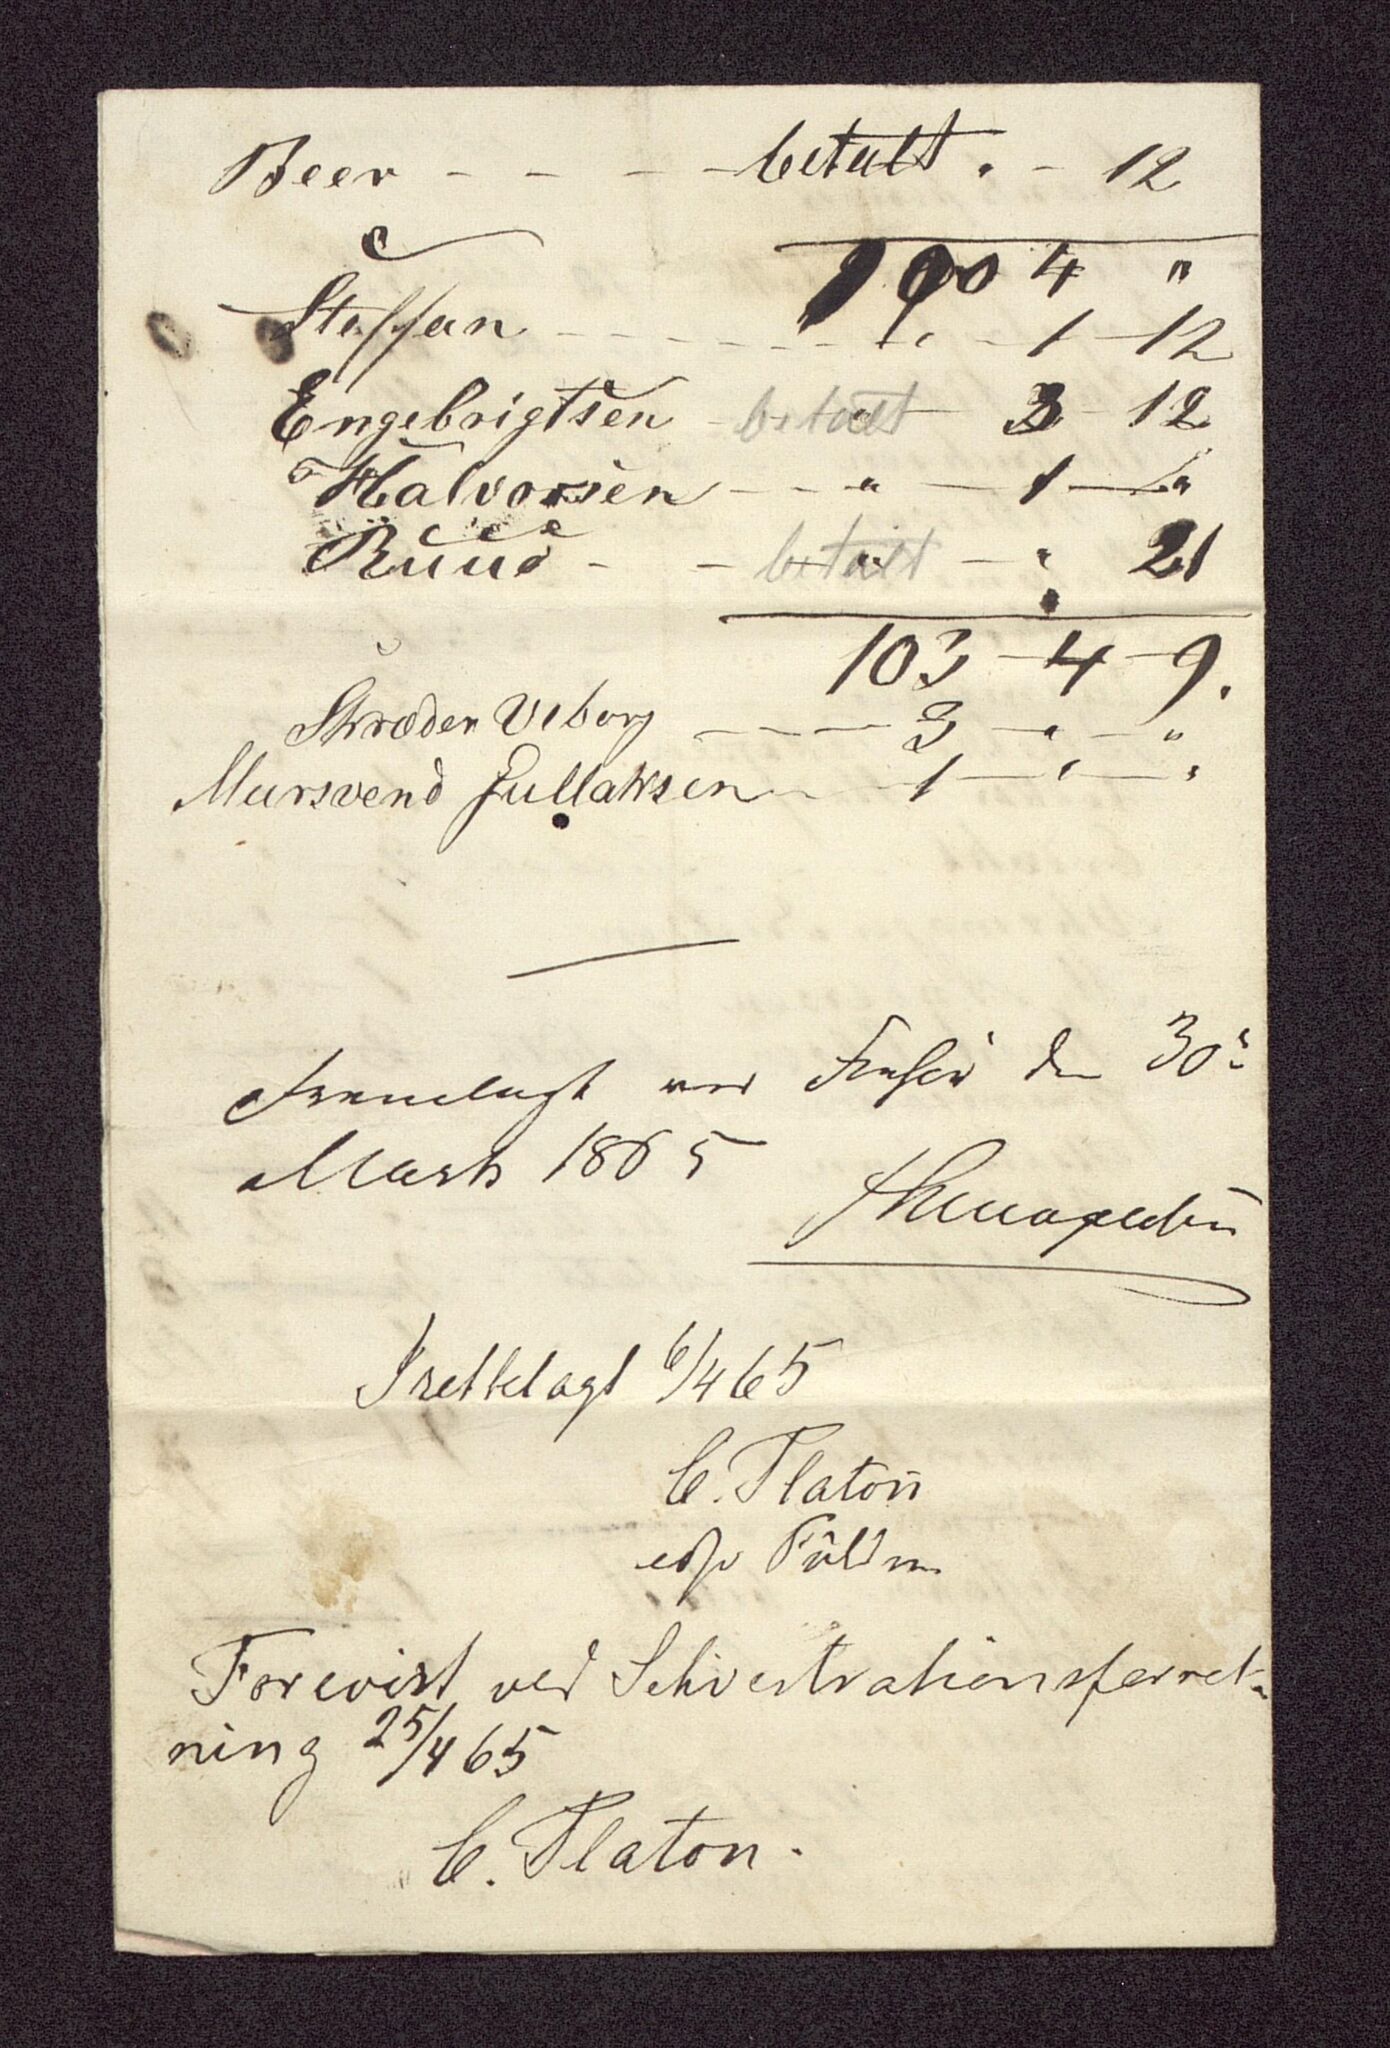 Beer - - - - betalt " - 12
100 4 "
Staffan - - - " - 1 - 12
Engebrigtsen - betalt " - 3 - 12
Halvorsen - - " - 1 - "
Ruud - - betalt " - " 21
103 - 4 - 9.
Skræder Viborg - - - 3 - " - "
Mursvend Gullaksen - - 1 - " - "
Fremlagt ved den 30
Marts 1865
Irettelagt 6/4 65
C. Platon
Fuldm.
Forevist ved Sekvestrationsforret-
ning 25/4 65
C. Platon.